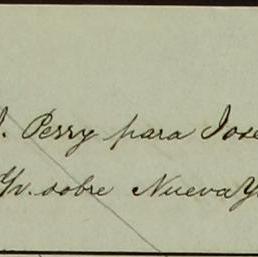 J. Perry para Jose
Yn. sobre Nueva Y